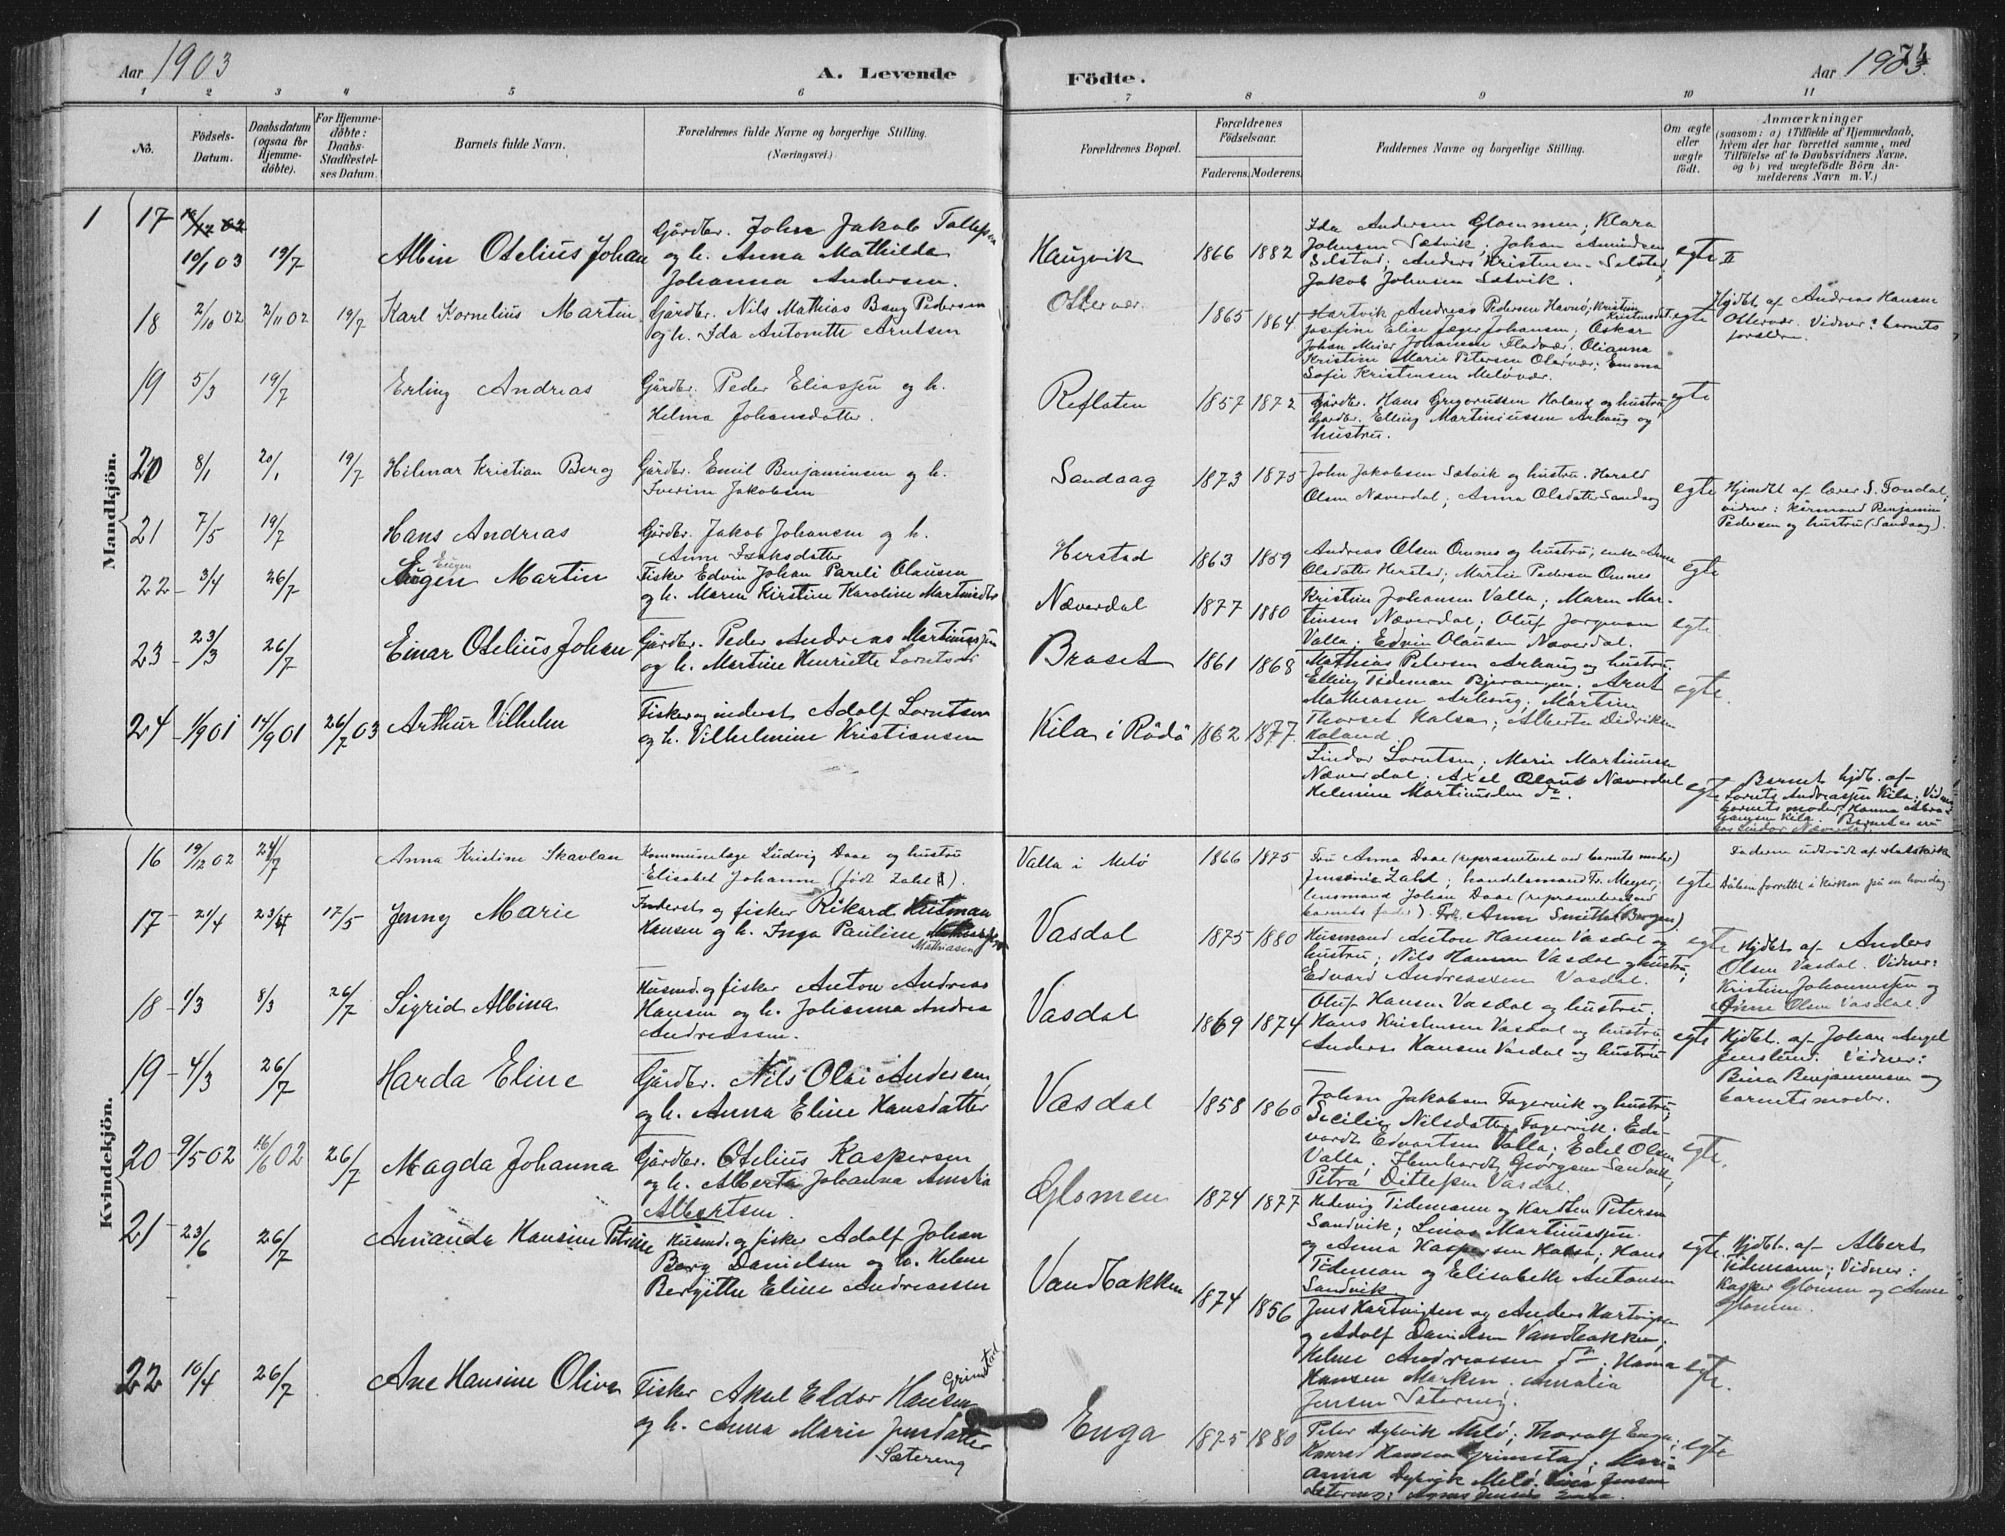 Aar 1903
A. Levende
Födte.
Aar 1903.
74
1 2 3 4 5 6 7 8 9 10 11
No.
Födsels-
Datum.
Daabsdatum
(ogsaa for
Hjemme-
döbte).
For Hjemme-
döbte:
Daabs-
Stadfæstel-
ses Datum.
Barnets fulde Navn.
Forældrenes fulde Navne og borgerlige Stilling.
(Næringsvei.)
Forældrenes Bopæl.
Forældrenes
Födselsaar.
Faderens. Moderens.
Faddernes Navne og borgerlige Stilling.
Om ægte
eller
uægte
födt.
Anmærkninger
(saasom: a) i Tilfælde af Hjemmedaab,
hvem der har forrettet samme, med
Tilföielse af to Daabsvidners Navne,
og b) ved uægtefödte Börn An-
melderens Navn m. V.)
Mandkjön.
1
17
19/1 03 19/7 Albin Otelius Johan
Gårdbr. John Jakob Tollefsen
og h. Anna Mathilda
Johanna Andersen.
Haugvik 1866 1882
Ida Andersen Glommen; Klara
Johnsen Sætvik; Johan Amundsen
Selstad; Anders Kristensen Selstad;
Jakob Johnsen Sætvik.
egte II
18 2/10 02 2/11 02 19/7 Karl Kornelius Martin
Gårdbr. Nils Mathias Bang Pedersen
og h. Ida Antonette Arntsen
Ottervær 1865 1864
Hartvik Andreas Pedersen Havnö;
Josefine Elise Jæger Johansen; Oskar
Johan Meier Johansen Fladvær. Olianna
Kristine Marie Petersen Otervær; Emma
Sofie Kristensen Melövær.
egte
Hjdbt. af Andreas Hansen
Ottervær. Vidner: barnets
forældre.
19 5/3 19/7 Erling Andreas
Gårdbr. Peder Eliassen og h.
Helma Johansdatter.
Reflaten 1857 1872
Gårdbr. Hans Gregoriussen Haland og hustru
Gårdbr. Elling Martiniussen Arhaug og
hustru.
egte
20 8/1 20/1 19/7 Hilmar Kristian Berg
Gårdbr. Emil Benjaminsen og h.
Iverine Jakobsen
Sandaag 1873 1875
John Jakobsen Sætvik og hustru. Harald
Olsen Næverdal; Anna Olsdatter Sandaag
egte
Hjemdbt af lærer S. Tondal;
vidner: kirmand Benjamin
Pedersen og hustru (Sandaag).
21 7/5 19/7 Hans Andreas
Gårdbr. Jakob Johansen og h.
Anne Isaksdatter
Herstad 1863 1859
Andreas Olsen Omnes og hustru; enke Anne
Olsdatter Herstad; Martin Pedersen Omnes
egte
22 3/4 26/7 Eugen Martin
Eugen
Fisker Edvin Johan Pareli Olausen
og h. Maren Kirstine Karoline Martinsdtr
Næverdal 1877 1880
Kristine Johansen Valla; Maren Mar-
tinsen Næverdal; Oluf Jorgensen
Valla; Edvin Olausen Næverdal.
egte
23 23/3 26/7 Einar Otelius Johan
Gårdbr. Peder Andreas Martinussen
og h. Martine Henriette Lorntsen
Braset 1861 1868
Mathias Petersen Arhaug og hustru.
Elling Tideman Bjerangen; Arnt
Mathiasen Arhaug; Martin
Thorset Halsa; Alberte Didriksen
Haland.
egte.
24 1/9 01 14/9 01 26/7 03 Arthur Vilhelm
Fisker og inderst Adolf Lorntsen
og h. Vilhelmine Kristiansen
Kila i Rödö 1862 1877.
Sindor Lorntsen; Marie Martinussen
Næverdal; Axel Olaus Næverdal
Helmine Martinussen do.
egte
Barnet hjdbt. af
Lornts Andreassen Kila; Vidner
barnets moder, Hanna Abra-
hamsen Kila. Barnet er nu
hos Sindor Næverdal
Kvindekjön.
16 19/12 02 24/7 Anna Kristine Skavlan
Kommunelæge Ludvig Daae og hustru
Elisabet Johanne (född Zahl).
Valla i Melö 1866 1875
Fru Anna Daae (repræsenteret ved barnets moder)
Jensenie Zahl; handelsmand Fr. Meyer;
lensmand Johan Daae (repræsenteret
barnets fader). Frk. Anna Smith (Bergen).
egte
Faderen udtrådt af statskirken
Dåben forrettet i kirken på en hverdag.
17 21/4 23/4 17/5 Jenny Marie
Inderst og fisker Rikard Hitman
Hansen og h. Inga Pauline
Mathiasen
Vasdal 1875 1880
Husmand Anton Hansen Vasdal og
hustru; Nils Hansen Vasdal og hustru;
Edvard Andreassen Vasdal.
egte
Hjdbt af Anders
Olsen Vasdal. Vidner:
Kristine Johannessen og
Anne Olsen Vasdal.
18 1/3 8/3 26/7 Sigrid Albina
Husmd. og fisker Anton Andreas
Hansen og h. Johanna Andrea
Andreassen.
Vasdal 1869 1874
Oluf Hansen Vasdal og hustru;
Hans Kristensen Vasdal og hustru;
Anders Hansen Vasdal og hustru
egte
Hjdbt. af Johan Angel
Jenslund. Vidner:
Bina Benjaminsen og
barnets moder.
19 4/3 26/7 Harda Eline
Gårdbr. Nils Olai Andersen,
og h. Anna Eline Hansdatter
Vasdal 1858 1860
Johan Jakobsen Fagervik og hustru
Secilie Nilsdatter Fagervik; Ed-
vardt Edvartsen Valla; Edel Olsen
Valla; Georgsen Sandvik;
Petra Ditlefsen Vasdal.
egte.
20 9/5 02 16/6 02 26/7 Magda Johanna
Gårdbr. Otelius Kaspersen
og h. Alberta Johanna Amalia
Albertsen.
Glomen 1874 1877
Hedvig Tidemann og Karsten Petersen
Sandvik; Linas Martinussen
og Anna Kaspersen Halsa; Hans
Tideman og Elisabeth Antonsen
Sandvik
egte.
Hjdbt. af Albert
Tidemann; Vidner:
Kasper Glomen og Anne
Glomen.
21 23/6 26/7 Amanda Hansine Petrine
Husmd. og fisker Adolf Johan
Berg Danielsen og h. Helene
Bergitte Eline Andreassen
Vandbakken 1874 1856
Jens Hartvigsen og Anders Hartvigsen
og Adolf Danielsen Vandbakken;
Helene Andreassen do; Hanna
Hansen Marken; Amalia
Jensen Sætereng.
egte.
22 10/4 26/7 Ane Hansine Oliva
Fisker Aksel Eldor Hansen
Grimstad
og h. Anna Marie Jensdatter
Sætereng
Enga 1875 1880
Peter Dybvik Melö; Thoralf Enga;
Konrad Hansen Grimstad; Maria
Anna Dybvik Melö. Jensen
Sætereng;
egte